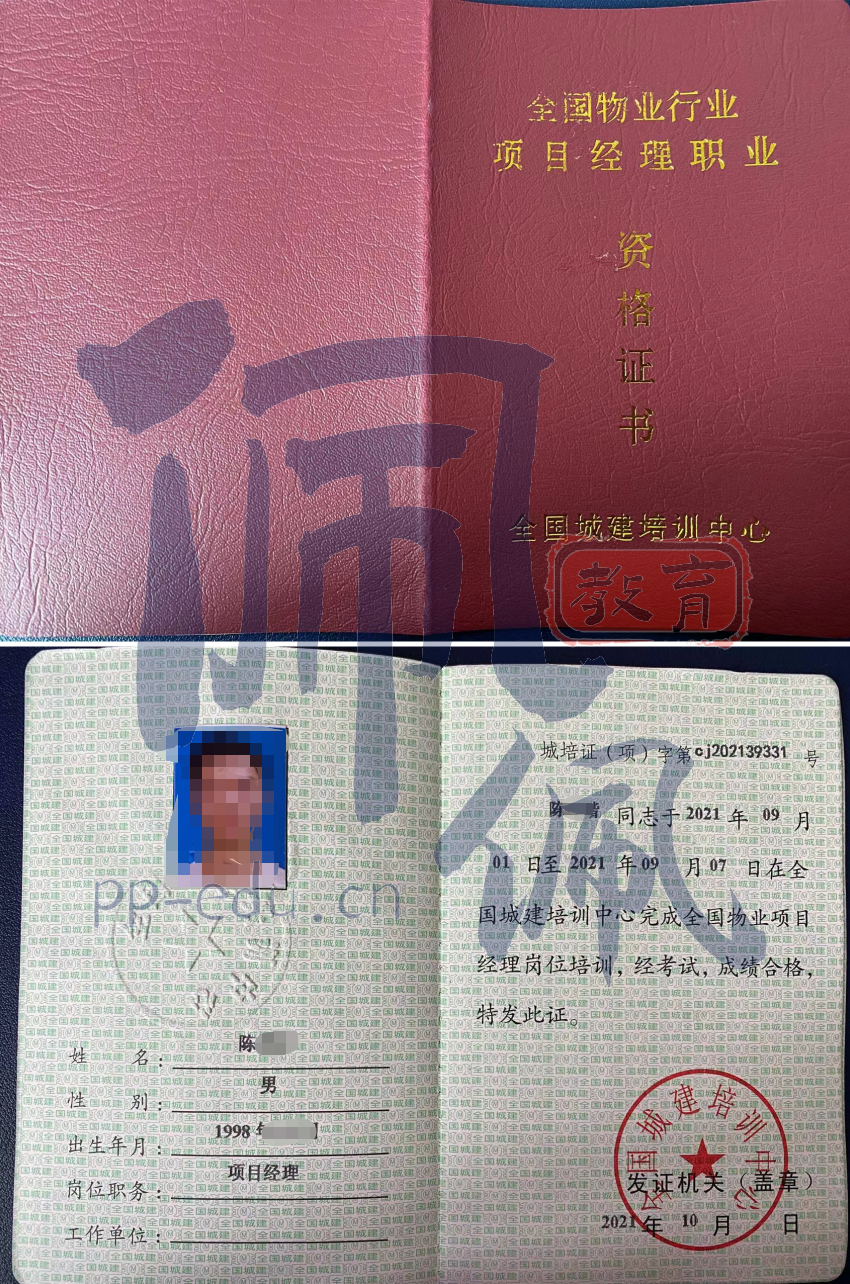 全国物业行业
项目经理职业
资
格
证
书
全国城建培训中心
佩佩
教育
pp-edu.cn
姓 名：陈
性 别：男
出生年月：1998 年
岗位职务：项目经理
工作单位：
城培证（项）字第cj202139331 号
陈 同志于 2021 年 09 月
01 日至 2021 年 09 月 07 日在全
国城建培训中心完成全国物业项目
经理岗位培训，经考试，成绩合格，
特发此证。
全国城建培训中心
发证机关（盖章）
2021 年 10 月 日